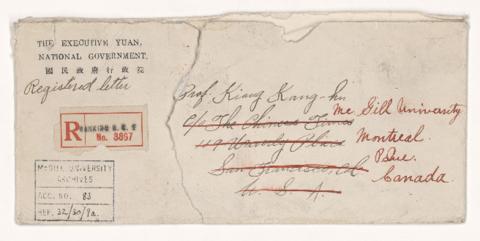 THE EXECUTIVE YUAN,
NATIONAL GOVERNMENT.
國民政府行政院
Registered letter
R NANKING
No. 3867
McGILL UNIVERSITY
ARCHIVES
ACC. NO. 83
REF. 32/30/9a.
Prof. Kiang Kang-hu
c/o The Chinese Times
119 Waverly Place
San Francisco, Cal.
U. S. A.
Mc Gill University
Montreal.
P. Que.
Canada.